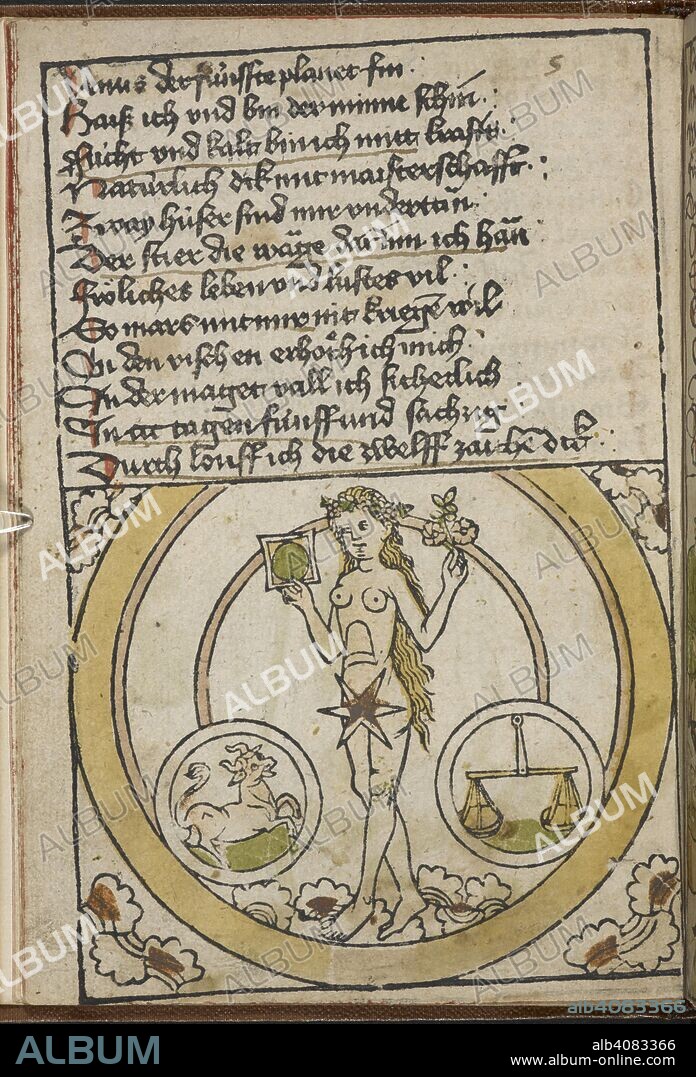 5
Venus der fünffte planet fin
Haiß ich vnd bin der minne schin
Fücht vnd kalt bin ich mitt krafft
Natürlich dik mit maisterschafft
Zway hüser sind mir vndertän
Der stier die wäge darinn ich hän
Fröliches leben vnd lustes vil
So mars mit mir nit kriegen wil
In den vischen erhöch ich mich
In der maget vall ich sicherlich
In tagen fünff vnd sechzig
Durch louff ich die zwelff zaichen
ALBUM
alb4083366
ALBUM
alb4083366
www.album-online.com